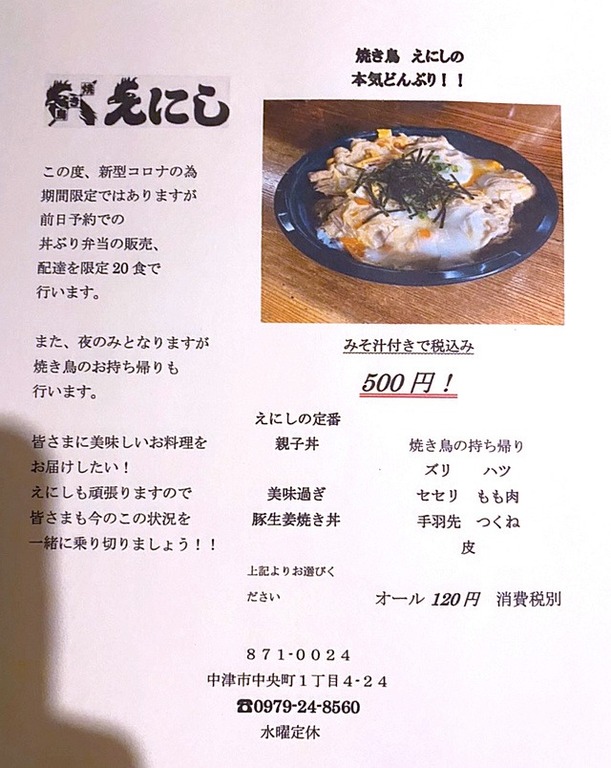 焼き鳥 えにしの
本気どんぶり！！
えにし
この度、新型コロナの為
期間限定ではありますが
前日予約での
丼ぶり弁当の販売、
配達を限定20食で
行います。
また、夜のみとなりますが
焼き鳥のお持ち帰りも
行います。
皆さまに美味しいお料理を
お届けしたい！
えにしも頑張りますので
皆さまも今のこの状況を
一緒に乗り切りましょう！！
みそ汁付きで税込み
500円！
えにしの定番
親子丼
美味過ぎ
豚生姜焼き丼
上記よりお選びく
ださい
焼き鳥の持ち帰り
ズリ ハツ
セセリ もも肉
手羽先 つくね
皮
オール 120円 消費税別
８７１-００２４
中津市中央町１丁目４-２４
☎0979-24-8560
水曜定休